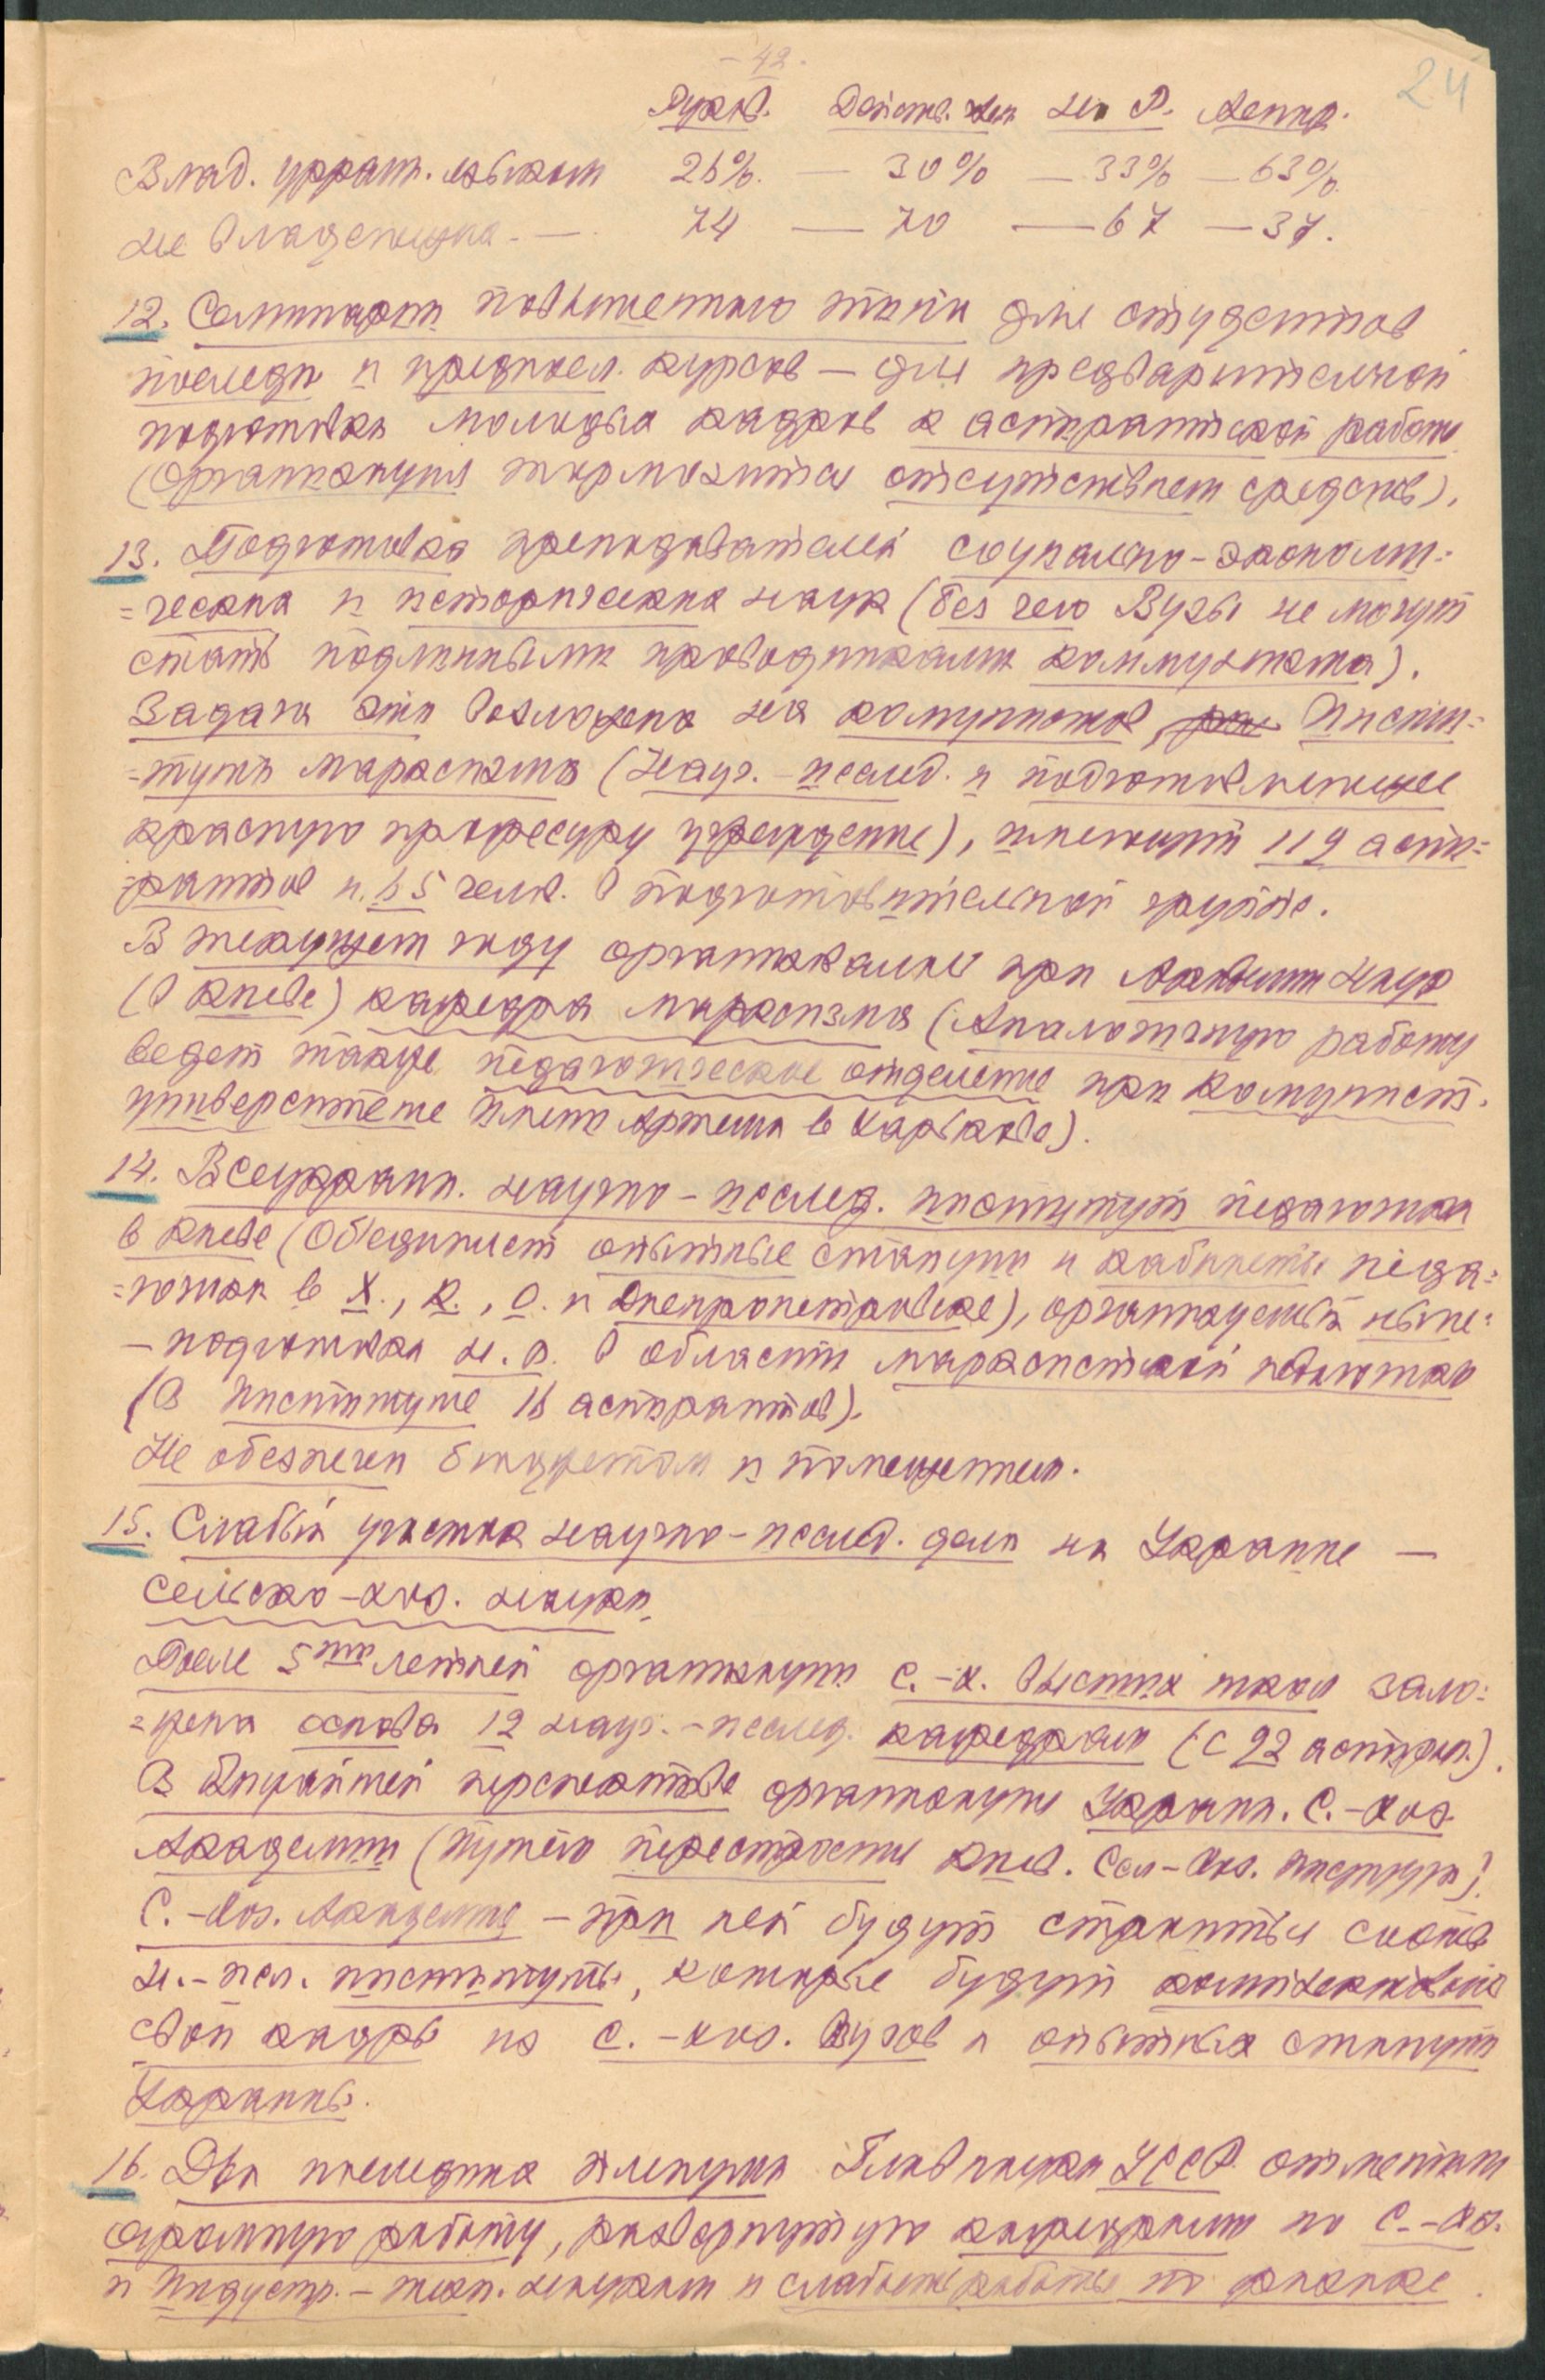 - 42 -
24
Руков. Действ. член Н. С. Аспир.
Влад. украин. языком 26%. — 30% — 33% — 63%.
не владеющих — 74 — 70 — 67 — 37.
12. Семинары повышенного типа для студентов
последн и предпосл. курсов — для предварительной
подготовки молодых кадров к аспирантской работе
(Организация тормозится отсутствием средств).
13. Подготовка преподавателей социально-экономи=
=ческих и исторических наук (без чего Вузы не могут
стать подлинными проводниками коммунизма).
Задача эта возложена на коммунистов, Инсти=
=тута марксизма (Науч.-исслед. и подготовляющее
красную профессуру учреждение), имеющий 119 аспи=
=рантов и 65 челов. в подготовительной группе.
В текущем году организована при Академии Наук
(в Киеве) кафедра марксизма (Аналогичную работу
ведет также педагогическое отделение при Коммунист.
университете имени Артема в Харькове).
14. Всеукраин. научно-исслед. институт педагогики
в Киеве (Объединяет опытные станции и кабинеты педа=
=гогики в Х., К., О. и Днепропетровске), организуемый ныне:
— подготовка н. р. в области марксистской педагогики
(В Институте 16 аспирантов).
Не обеспечен бюджетом и помещением.
15. Слабый участок научно-исслед. дела на Украине —
сельско-хоз. науки.
После 5ти летней организации с.-х. высших школ зало=
=жена основа 12 науч.-исслед. кафедрам (с 92 аспиран.).
В ближайшей перспективе организация Украин. С.-хоз.
Академии (путем перестройки Киев. Сел-хоз. института).
С.-хоз. Академия — при ней будут строиться соотв.
н.-исл. институты, которые будут комплектовать
свои кадры из с.-хоз. Вузов и опытных станций
Украины.
16. Два последних пленума Главнауки УССР отметили
огромную работу, развернутую кафедрами по с.-хоз.
и индустр.-техн. наукам и слабые работы по физике.